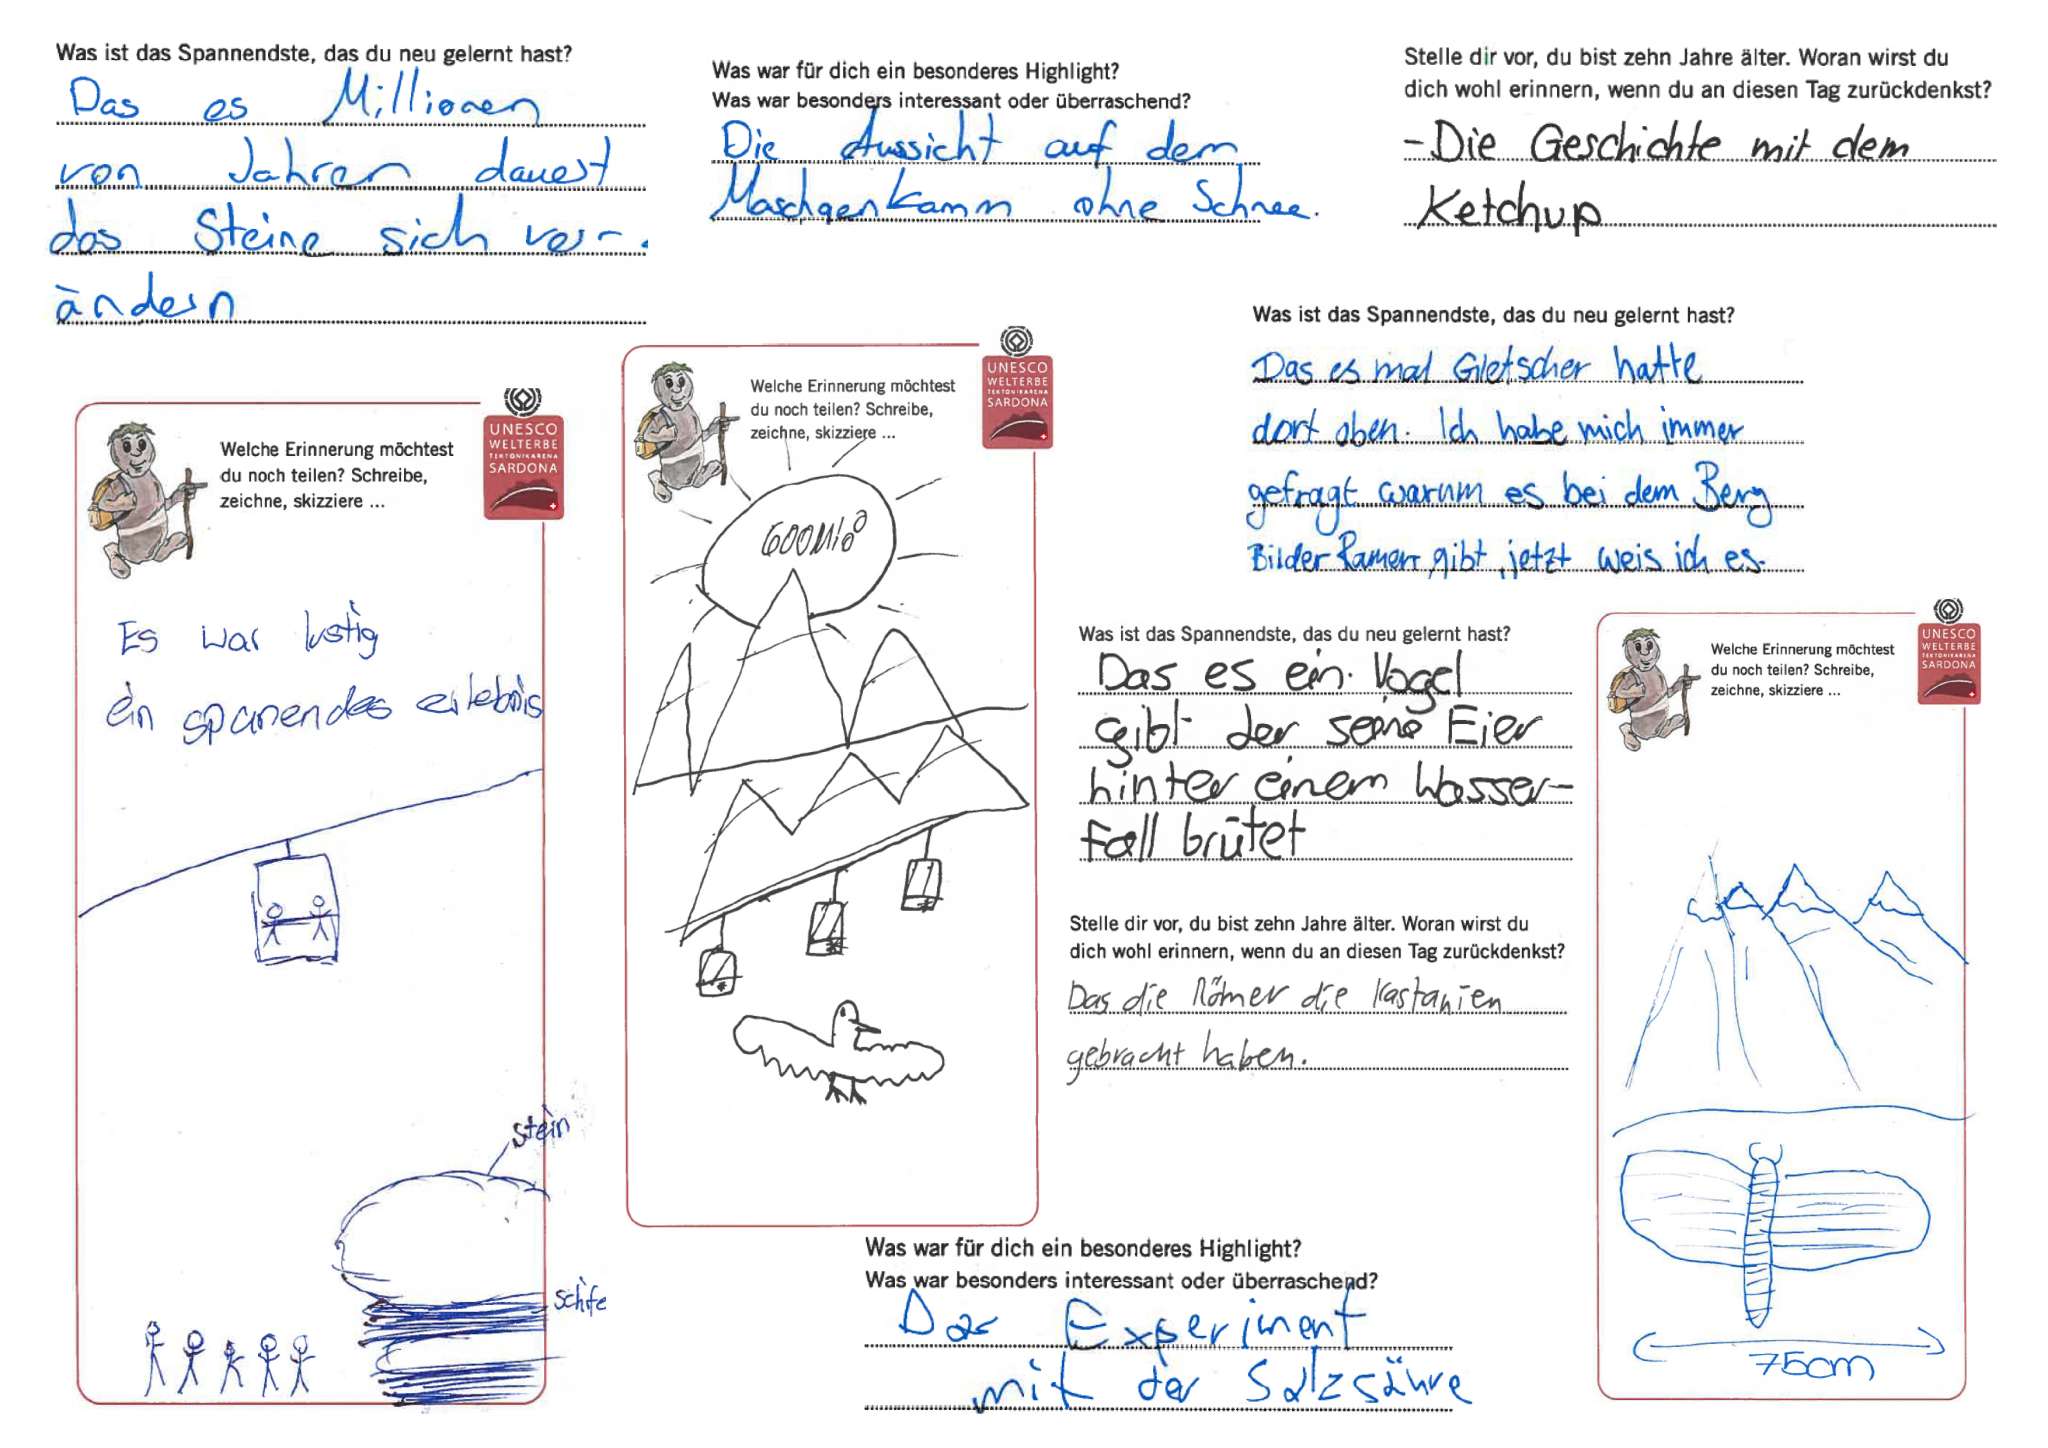 Was ist das Spannendste, das du neu gelernt hast?
Das es Millionen
von Jahren dauert
das Steine sich ver-
ändern
Was war für dich ein besonderes Highlight?
Was war besonders interessant oder überraschend?
Die Aussicht auf dem
Maschgenkamm ohne Schnee.
Stelle dir vor, du bist zehn Jahre älter. Woran wirst du
dich wohl erinnern, wenn du an diesen Tag zurückdenkst?
-Die Geschichte mit dem
Ketchup
Was ist das Spannendste, das du neu gelernt hast?
Das es mal Gletscher hatte
dort oben. Ich habe mich immer
gefragt warum es bei dem Berg
Bilder Ramen gibt jetzt weis ich es.
Welche Erinnerung möchtest
du noch teilen? Schreibe,
zeichne, skizziere ...
UNESCO
WELTERBE
TEKTONIKARENA
SARDONA
Es war lustig
ein spanendes erlebnis
stein
schife
Welche Erinnerung möchtest
du noch teilen? Schreibe,
zeichne, skizziere ...
UNESCO
WELTERBE
TEKTONIKARENA
SARDONA
Was ist das Spannendste, das du neu gelernt hast?
Das es ein Vogel
gibt der seine Eier
hinter einem Wasser-
fall brütet
Stelle dir vor, du bist zehn Jahre älter. Woran wirst du
dich wohl erinnern, wenn du an diesen Tag zurückdenkst?
Das die Römer die Kastanien
gebracht haben.
Welche Erinnerung möchtest
du noch teilen? Schreibe,
zeichne, skizziere ...
UNESCO
WELTERBE
TEKTONIKARENA
SARDONA
75cm
Was war für dich ein besonderes Highlight?
Was war besonders interessant oder überraschend?
Das Experiment
mit der Salzsäure